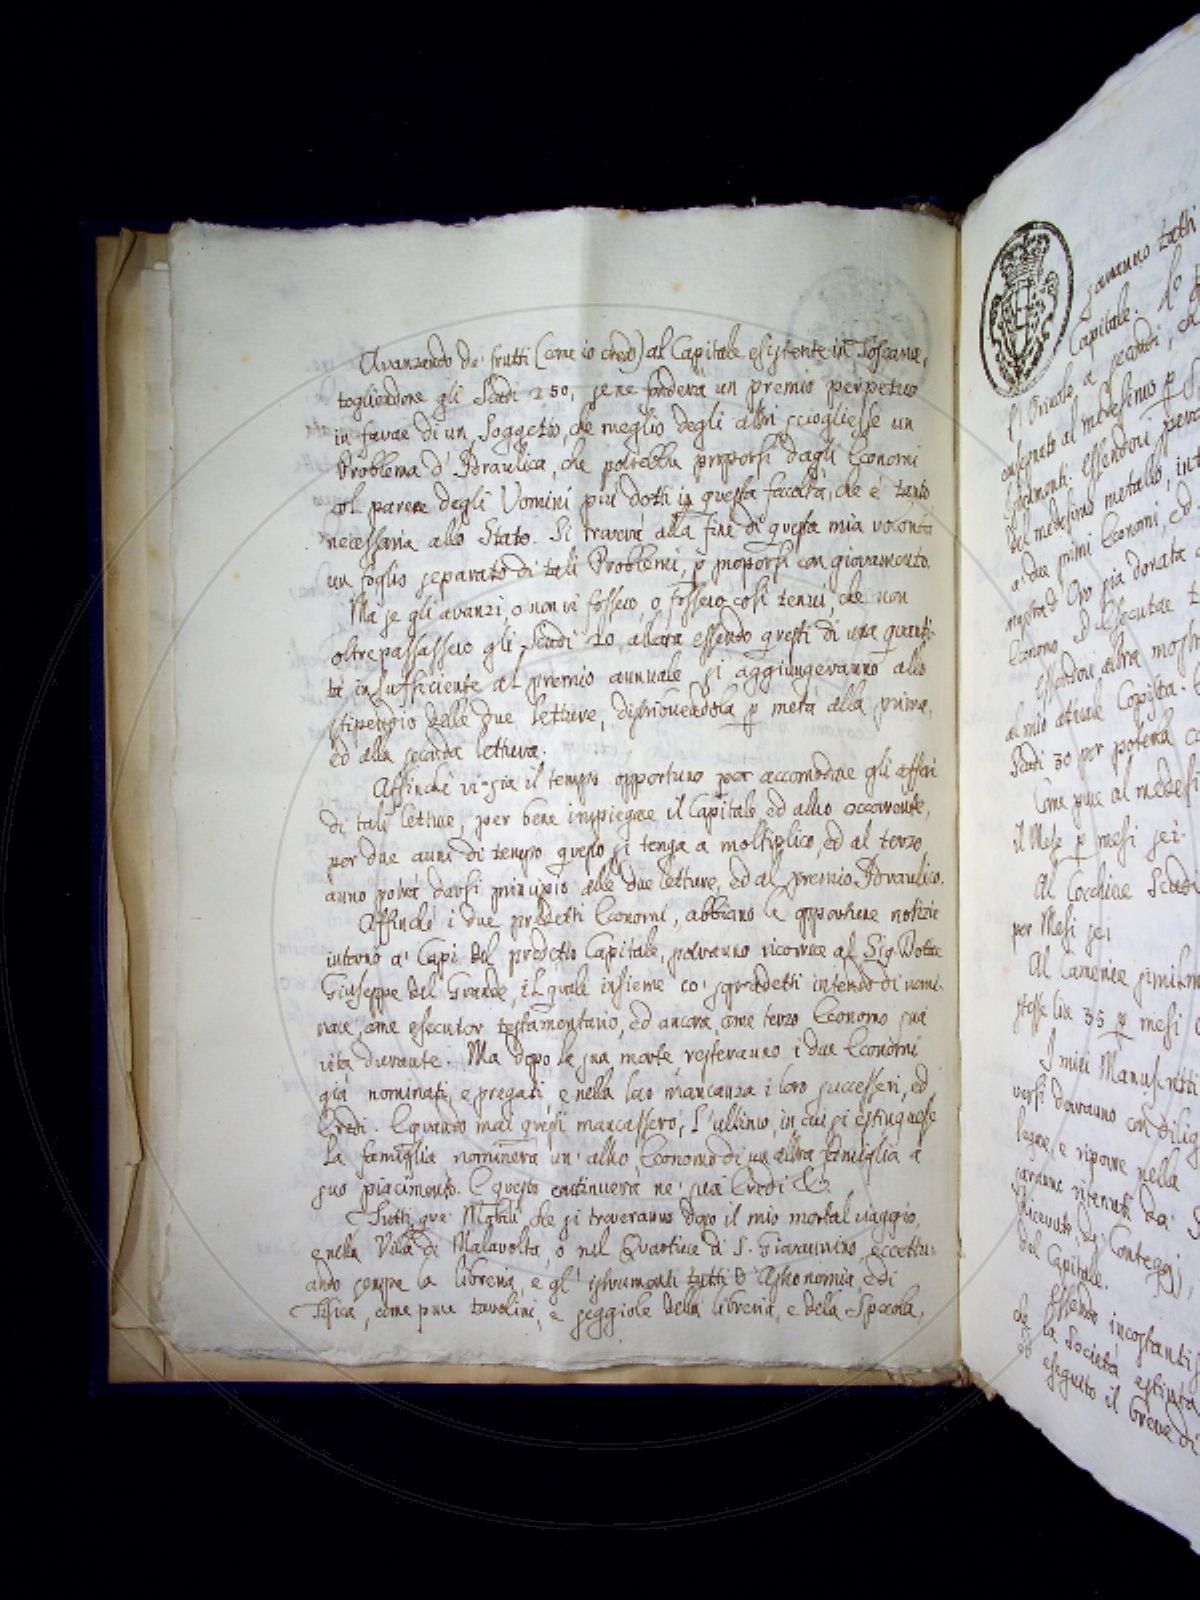 Avanzando de' frutti (come io credo) al Capitale esistente in Toscana,
togliendone gli Scudi 250, se ne fonderà un premio perpetuo
in favore di un Soggetto, che meglio degli altri sciogliesse un
Problema d'Idraulica, che potrebbe proporsi dagli Economi
col parere degli Uomini più dotti in questa facoltà, che è tanto
necessaria allo Stato. Si troverà alla fine di questa mia volontà
un foglio separato di tali Problemi, p proporsi con giovamento.
Ma se gli avanzi, o non vi fossero, o fossero così tenui, che non
oltrepassassero gli Scudi 20, allora essendo questi di una quanti-
tà insufficiente al premio annuale, si aggiungeranno allo
stipendio delle due letture, distribuendola p metà alla prima,
ed alla seconda lettura.
Affinchè vi sia il tempo opportuno per accomodare gli affari
di tali letture, per bene impiegare il Capitale ed altro occorrente,
per due anni di tempo questo si tenga a moltiplico, ed al terzo
anno potrà darsi principio alle due letture, ed al premio Idraulico.
Affinchè i due predetti Economi, abbiano le opportune notizie
intorno a' Capi del predetto Capitale, potranno ricorrere al Sig. Dottor
Giuseppe del Grande, il quale insieme co' sopradetti intendo di nomi-
nare come esecutor testamentario, ed ancora come terzo Economo sua
vita durante. Ma dopo la sua morte resteranno i due Economi
già nominati, e pregati e nella loro mancanza i loro successori, ed
Eredi. E quando mai questi mancassero, l'ultimo, in cui si estinguesse
la famiglia nominerà un' altro Economo di un altra famiglia a
suo piacimento. E questo continuerà ne' suoi Eredi &c.
Tutti que' Mobili, che si troveranno dopo il mio mortal viaggio,
e nella Villa di Malavolta, o nel Quartiere di S. Giovannino, eccettu-
ando sempre la libreria, e gl' istrumenti tutti d'Astronomia, e di
Fisica, come pure tavolini, e seggiole della libreria, e della Specola,
saranno tutti
Capitale.
L' Oriuolo a secondi, ch
consegnato al medesimo p
Istrumenti. Essendovi
del medesimo metallo,
a' due primi Economi, ed
mostra d'Oro sia donata
Economo, ed Esecutore
Essendovi altra mostra
al mio attuale Copista.
Scudi 30 per poterla
Come pure al medesi
il Mese p mesi sei.
Al Cocchiere Scudi
per Mesi sei
Al Cameriere
stesse lire 35 p mesi
I miei Manuscritti
versi dovranno con dilig
legare, e riporre nella
saranno ritenuti da'
del Capitale.
Essendo
che la Società estinta
ed eseguito il breve di